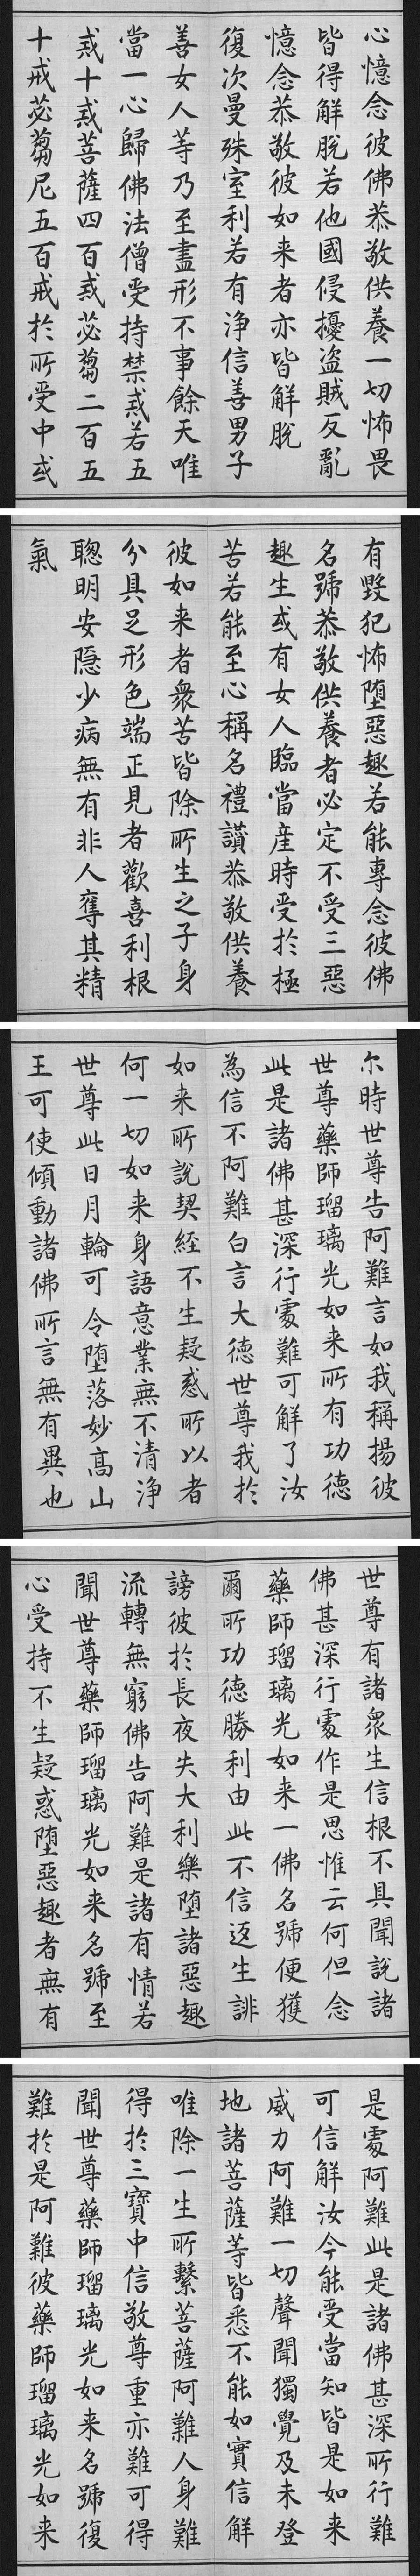 心憶念彼佛恭敬供養一切怖畏
皆得解脫若他國侵擾盜賊反亂
憶念恭敬彼如来者亦皆解脫
復次曼殊室利若有淨信善男子
善女人等乃至盡形不事餘天唯
當一心歸佛法僧受持禁戒若五
戒十戒菩薩四百戒苾芻二百五
十戒苾芻尼五百戒於所受中或
有毀犯怖墮惡趣若能專念彼佛
名號恭敬供養者必定不受三惡
趣生或有女人臨當產時受於極
苦若能至心稱名禮讚恭敬供養
彼如来者眾苦皆除所生之子身
分具足形色端正見者歡喜利根
聰明安隱少病無有非人奪其精
氣
尔時世尊告阿難言如我稱揚彼
世尊藥師瑠璃光如来所有功德
此是諸佛甚深行處難可解了汝
為信不阿難白言大德世尊我於
如来所說契經不生疑惑所以者
何一切如来身語意業無不清淨
世尊此日月輪可令墮落妙高山
王可使傾動諸佛所言無有異也
世尊有諸眾生信根不具聞說諸
佛甚深行處作是思惟云何但念
藥師瑠璃光如来一佛名號便獲
爾所功德勝利由此不信返生誹
謗彼於長夜失大利樂墮諸惡趣
流轉無窮佛告阿難是諸有情若
聞世尊藥師瑠璃光如来名號至
心受持不生疑惑墮惡趣者無有
是處阿難此是諸佛甚深所行難
可信解汝今能受當知皆是如来
威力阿難一切聲聞獨覺及未登
地諸菩薩等皆悉不能如實信解
唯除一生所繫菩薩阿難人身難
得於三寶中信敬尊重亦難可得
聞世尊藥師瑠璃光如来名號復
難於是阿難彼藥師瑠璃光如来